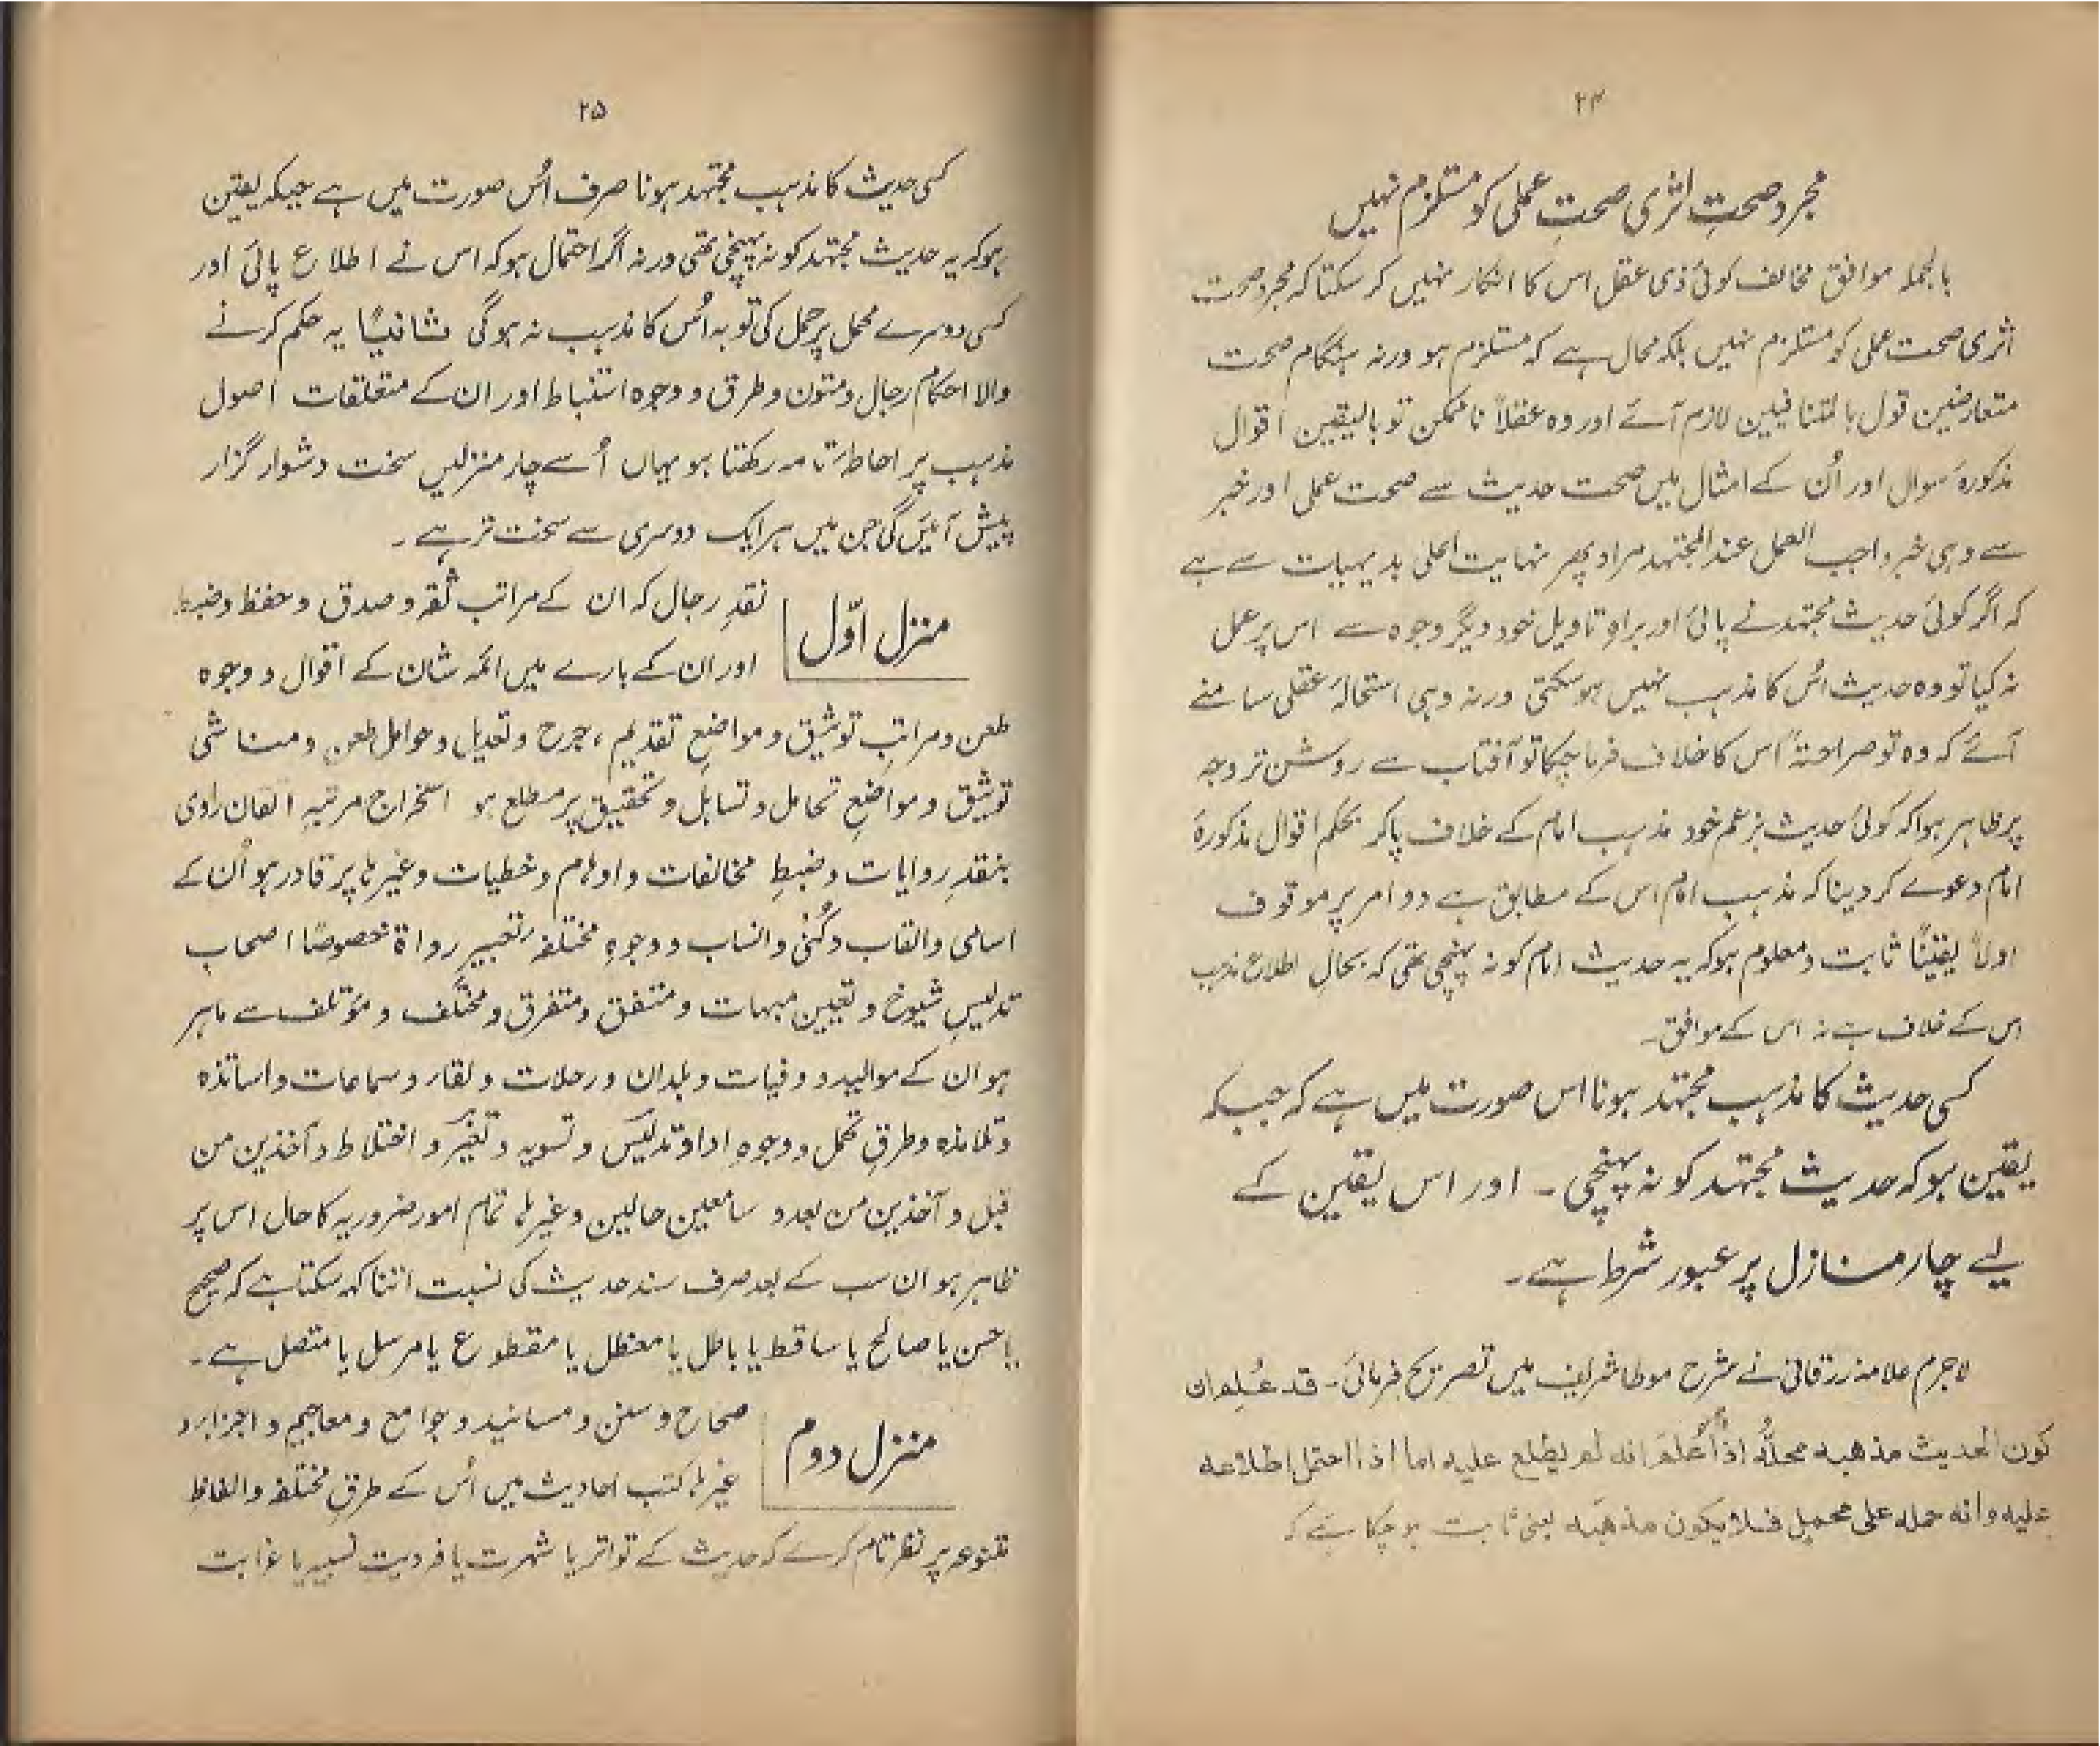 ۲۴
مجرد صحتِ اثری صحتِ عملی کو مستلزم نہیں
بالجملہ موافق مخالف کوئی ذی عقل اس کا انکار نہیں کر سکتا کہ مجرد صحت
اثری صحت عملی کو مستلزم نہیں بلکہ محال ہے کہ مستلزم ہو ورنہ ہنگام صحت
متعارضین قول بالمتنافیین لازم آئے اور وہ عقلاً ناممکن تو بالیقین اقوال
مذکورۂ سوال اور اُن کے امثال میں صحت حدیث سے صحت عملی اور خبر
سے وہی خبر واجب العمل عند المجتہد مراد پھر نہایت اعلیٰ بدیہیات سے ہے
کہ اگر کوئی حدیث مجتہد نے پائی اور براہ تاویل خود دیگر وجوہ سے اس پر عمل
نہ کیا تو وہ حدیث اُس کا مذہب نہیں ہو سکتی ورنہ وہی استحالۂ عقلی سامنے
آئے کہ وہ تو صراحۃً اس کا خلاف فرما چکا تو آفتاب سے روشن تر وجہ
پر ظاہر ہوا کہ کوئی حدیث بزعم خود مذہب امام کے خلاف پا کر بحکم اقوال مذکورۂ
امام دعوے کر دینا کہ مذہب امام اس کے مطابق ہے دو امر پر موقوف
اولاً یقیناً ثابت و معلوم ہو کہ یہ حدیث امام کو نہ پہنچی تھی کہ بحالِ اطلاع مذہب
اس کے خلاف ہے نہ اس کے موافق۔
کسی حدیث کا مذہب مجتہد ہونا اس صورت میں ہے کہ جبکہ
یقین ہو کہ حدیث مجتہد کو نہ پہنچی ۔ اور اس یقین کے
لیے چار منازل پر عبور شرط ہے۔
لاجرم علامہ زرقانی نے شرح موطا شریف میں تصریح فرمائی۔ قد عُلِم ان
کون الحدیث مذھبہ محلّہٗ اذا عُلِم انہ لم یطلع علیہ اما اذا احتمل اطلاعہ
علیہ وانہ حملہ علی محمل فلا یکون مذھبہ یعنی ثابت ہو چکا ہے کہ
۲۵
کسی حدیث کا مذہب مجتہد ہونا صرف اُس صورت میں ہے جبکہ یقین
ہو کہ یہ حدیث مجتہد کو نہ پہنچی تھی ورنہ اگر احتمال ہو کہ اس نے اطلاع پائی اور
کسی دوسرے محمل پر حمل کی تو یہ اُس کا مذہب نہ ہوگی ثانیًا یہ حکم کرنے
والا احکام رجال و متون و طرق و وجوہ استنباط اور ان کے متعلقات اصول
مذہب پر احاطۂ تامہ رکھتا ہو یہاں اُسے چار منزلیں سخت دشوار گزار
پیش آئیں گی جن میں ہر ایک دوسری سے سخت تر ہے ۔
منزل اوّل
نقدِ رجال کہ ان کے مراتب ثقہ و صدق و حفظ و ضبط
اور ان کے بارے میں ائمہ شان کے اقوال و وجوہ
طعن و مراتبِ توثیق و مواضع تقدیم، جرح و تعدیل و حوامل طعن و مناشی
توثیق و مواضعِ تحامل و تساہل و تحقیق پر مطلع ہو استخراج مرتبۂ اتقان راوی
بنقدِ روایات و ضبطِ مخالفات و اوہام و خطیات و غیرہا پر قادر ہو اُن کے
اسامی و القاب و کُنیٰ و انساب و وجوہ مختلفہ تعبیر رواۃ خصوصًا اصحاب
تدلیس شیوخ و تعیین مبہمات و متفق و متفرق و مختلف و مؤتلف سے ماہر
ہو ان کے موالید و وفیات و بلدان و رحلات و لقار و سماعات و اساتذہ
و تلامذہ و طرق تحمل و وجوہ ادا و تدلیس و تسویہ و تغیّر و اختلاط و آخذین من
قبل و آخذین من بعد و سامعین حالین و غیرہا تمام امور ضروریہ کا حال اس پر
ظاہر ہو ان سب کے بعد صرف سند حدیث کی نسبت اتنا کہہ سکتا ہے کہ صحیح
یا حسن یا صالح یا ساقط یا باطل یا معظل یا مقطوع یا مرسل یا متصل ہے ۔
منزل دوم
صحاح و سنن و مسانید و جوامع و معاجیم و اجزا و
غیرہا کتب احادیث میں اُس کے طرقِ مختلفہ و الفاظِ
متنوعہ پر نظر تام کرے کہ حدیث کے تواتر یا شہرت یا فردیت نسبیہ یا غرابت